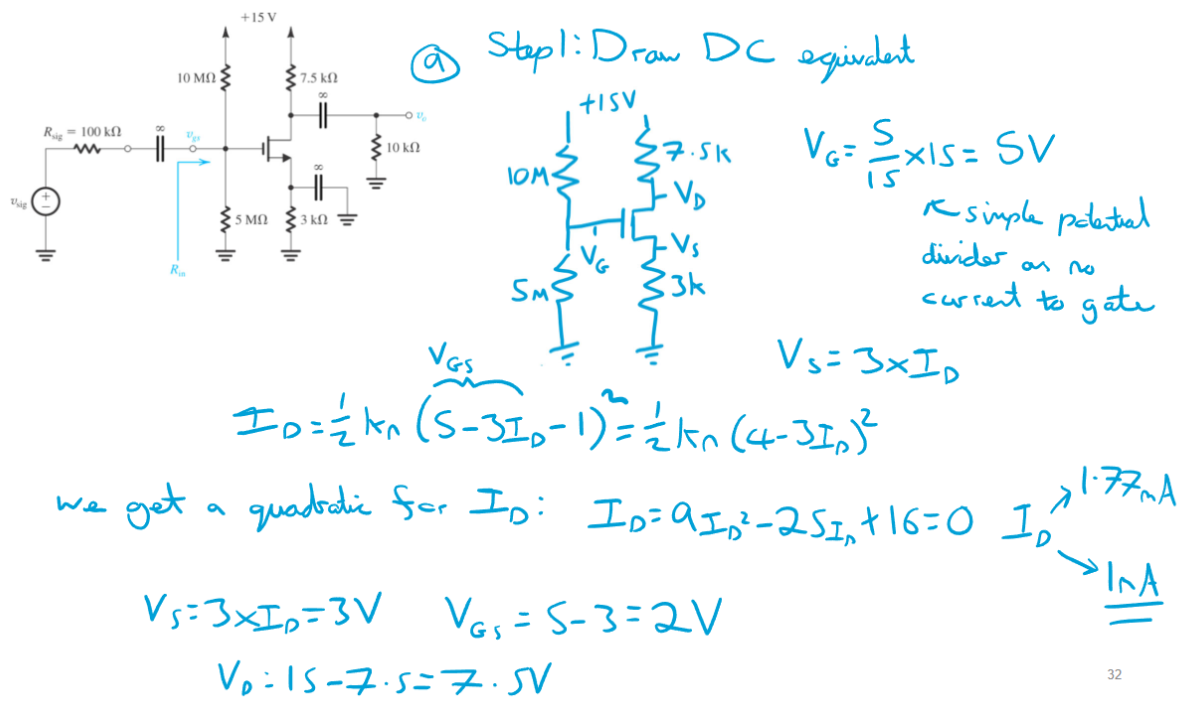 +15 V
10 MΩ
7.5 kΩ
∞
v_o
R_sig = 100 kΩ
∞
v_gs
10 kΩ
∞
v_sig
+
−
5 MΩ
3 kΩ
R_in
(a) Step1: Draw DC equivalent
+15V
10M
7.5K
V_D
V_G
V_S
5M
3k
V_G = 5/15 × 15 = 5V
↖ simple potential
divider as no
current to gate
V_S = 3×I_D
V_GS
I_D = 1/2 k_n (5-3I_D-1)² = 1/2 k_n (4-3I_D)²
we get a quadratic for I_D: I_D = 9I_D² - 25I_D + 16 = 0 I_D
1.77mA
1mA
V_S = 3×I_D = 3V V_GS = 5-3 = 2V
V_D = 15-7.5 = 7.5V
32